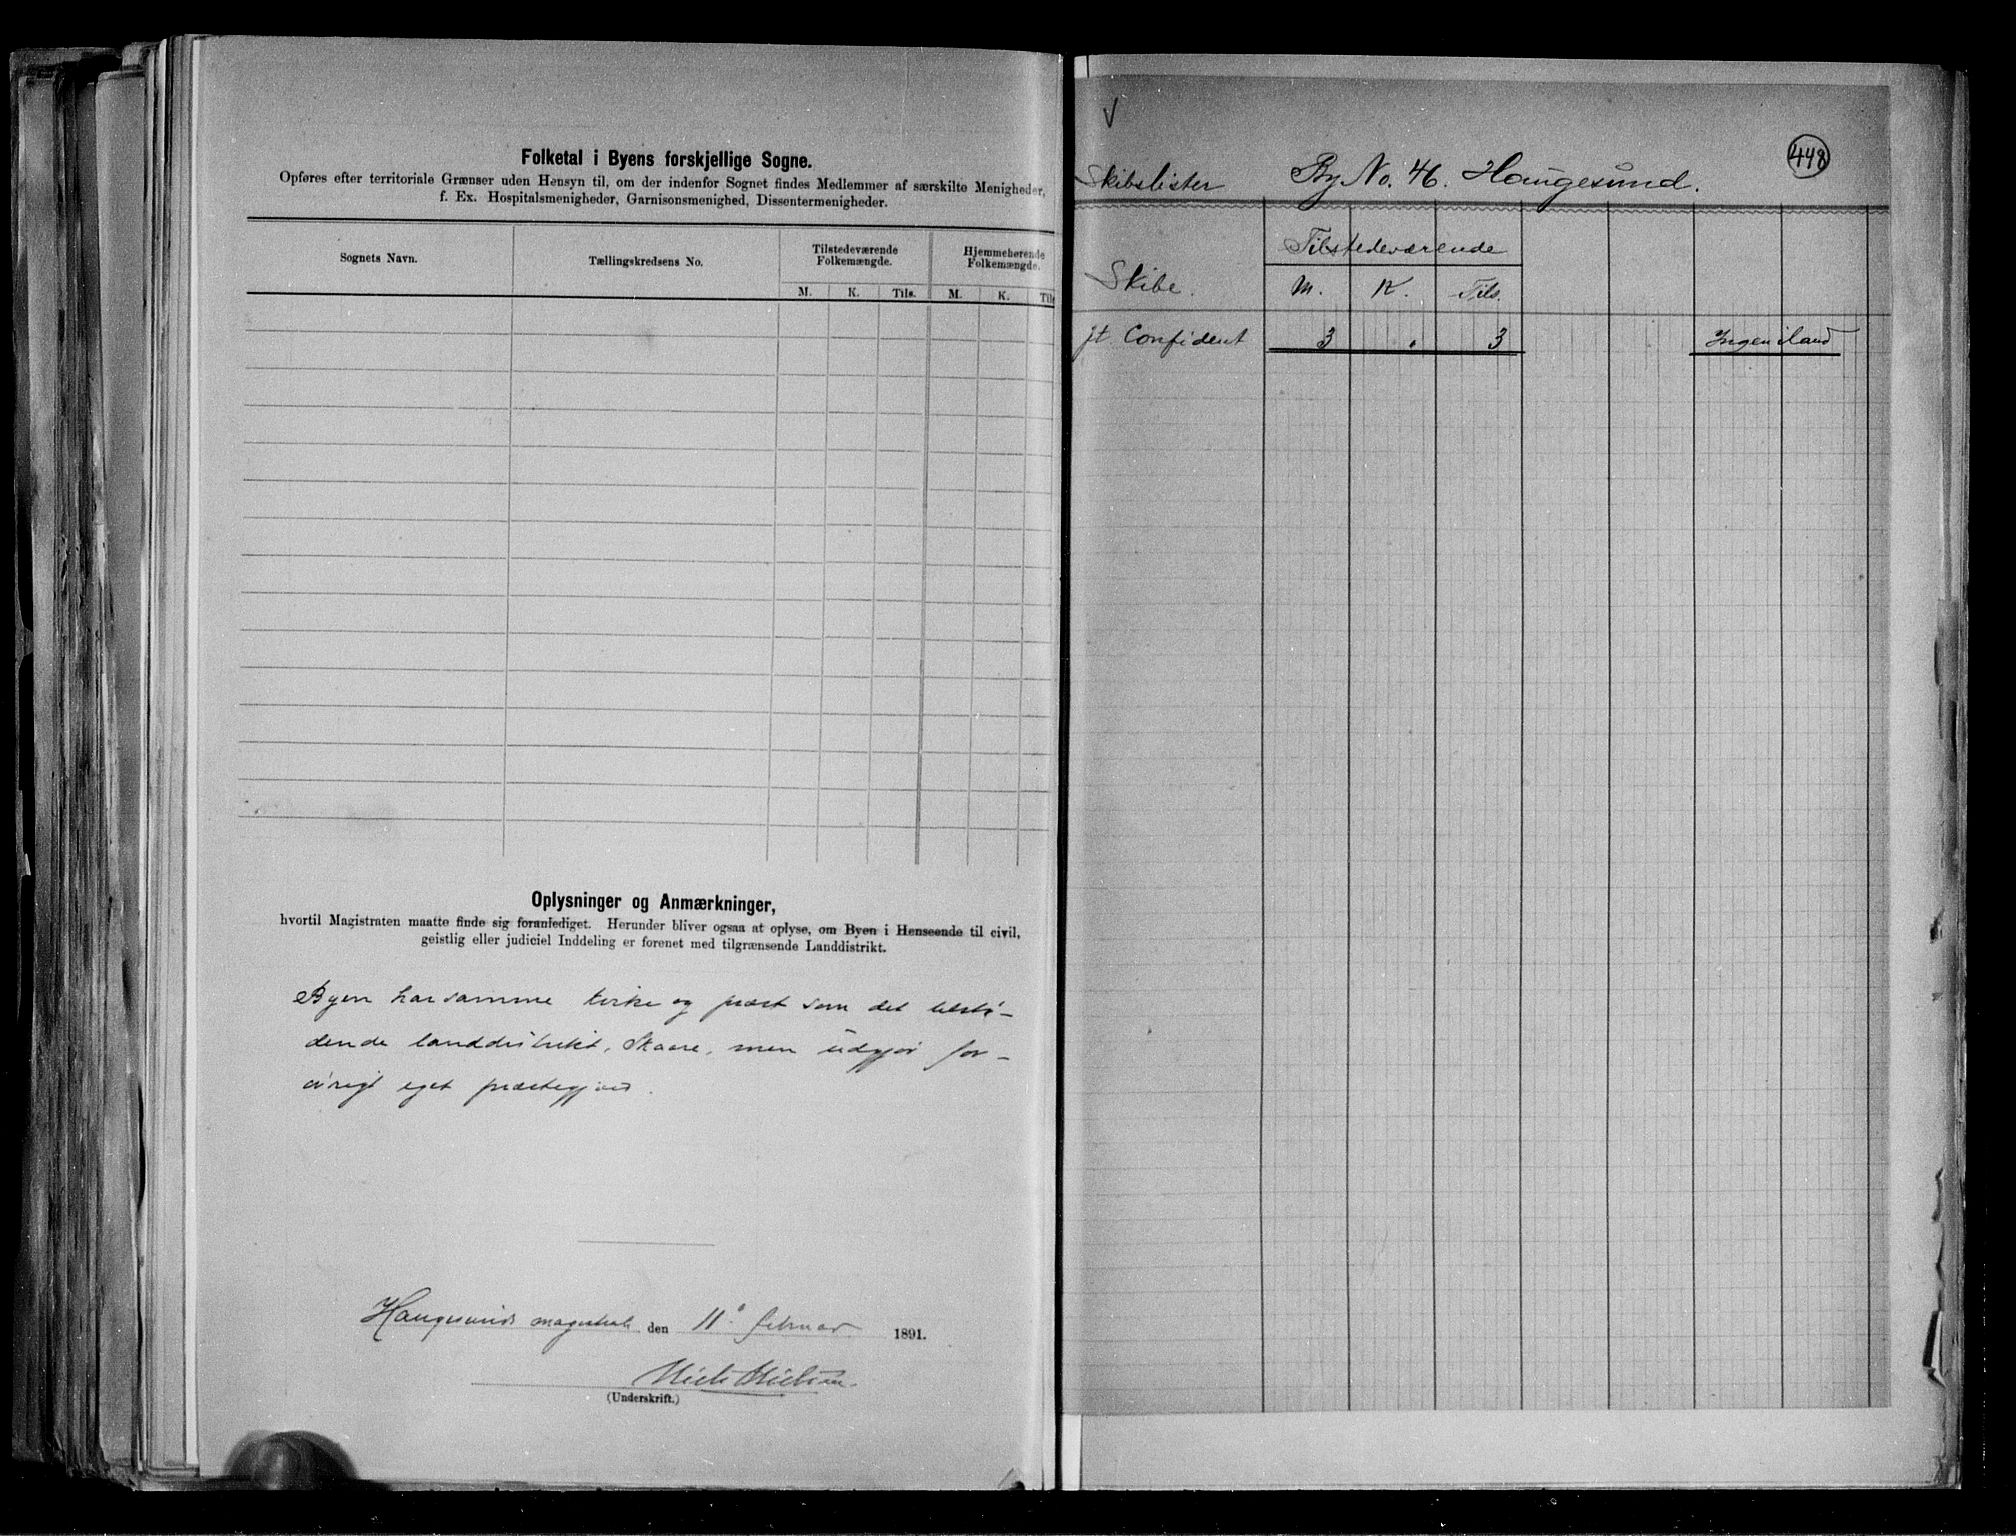 Folketal i Byens forskjellige Sogne.
Opføres efter territoriale Grænser uden Hensyn til, om der indenfor Sognet findes Medlemmer af særskilte Menigheder,
f. Ex. Hospitalsmenigheder, Garnisonsmenighed, Dissentermenigheder.
Sognets Navn. Tællingskredsens No. Tilstedeværende Folkemængde. Hjemmehørende Folkemængde.
M. K. Tils. M. K. Tils
Oplysninger og Anmærkninger,
hvortil Magistraten maatte finde sig foranlediget. Herunder bliver ogsaa at oplyse, om Byen i Henseende til civil,
geistlig eller judiciel Inddeling er forenet med tilgrænsende Landdistrikt.
Byen har samme kirke og præst som det tilstø-
dende landdistrikt, Skaare, men udgjør for-
øvrigt eget præstegjæld.
Haugesunds magistrat den 11. februar 1891.
Niels Nielsen
(Underskrift.)
448
Skibslister By No. 46. Haugesund.
Tilstedeværende
Skibe. M. K. Tils.
Jt. Confident 3 . 3 Ingen iland